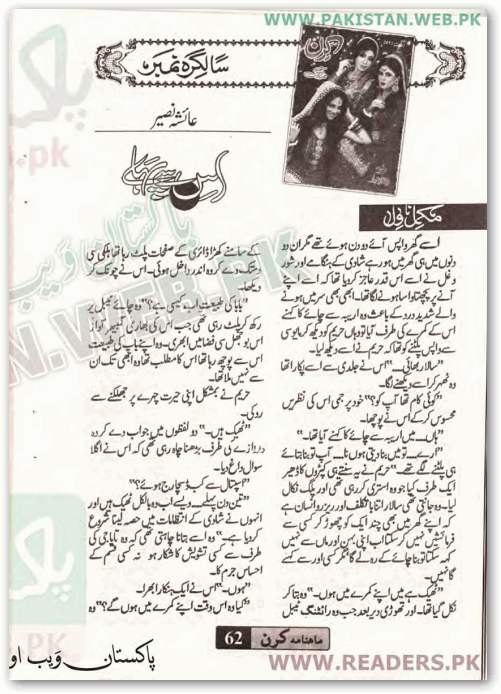 WWW.PAKISTAN.WEB.PK
کرن
سالگرہ نمبر
عائشہ نصیر
اس سے پہلے
مکمل ناول
اسے گھر واپس آئے دو دن ہوئے تھے مگر ان دو
دنوں میں ہی گھر میں ہو رہے شادی کے ہنگامے اور شور
و غل نے اسے اس قدر عاجز کر دیا تھا کہ اسے اپنے
آنے پر پچھتاوا سا ہونے لگا تھا۔ ابھی بھی سر میں ہونے
والے شدید درد کے باعث وہ اریبہ سے چائے کا کہنے
اس کے کمرے کی طرف آیا تو وہاں حریم کو دیکھ کر مایوسی
سے واپس پلٹنے کو تھا کہ حریم نے اسے دیکھ لیا۔
"سالار بھائی۔۔۔" اس نے جلدی سے اسے پکارا تھا
وہ ٹھہر کر اسے دیکھنے لگا۔
"کوئی کام تھا آپ کو؟" خود پر جمی اس کی نظریں
محسوس کر کے اس نے پوچھا۔
"ہاں۔۔۔ میں اریبہ سے چائے کا کہنے آیا تھا۔"
"ارے۔۔۔ تو میں بنا دیتی ہوں نا۔۔۔ آپ تو بنا بتائے
ہی پلٹنے لگے تھے۔" حریم نے یہ سنتے ہی کپڑوں کا ڈھیر
ایک طرف کیا جو وہ استری کر رہی تھی اور پلگ نکال
لیا۔ وہ جانتی تھی سالار اتنا با تکلف اور ریزرو انسان ہے
کہ اپنے گھر میں بھی چند ایک کو چھوڑ کر کسی سے
فرمائش نہیں کر سکتا اب اپنی بہن اور ماں سے نہیں
کہہ سکتا تو بنا چائے کے رہ لے گا مگر کسی اور سے کہے
گا نہیں۔
"ٹھیک ہے میں اپنے کمرے میں ہوں۔" وہ بتا کر
نکل گیا تھا۔ اور تھوڑی دیر بعد جب وہ رائٹنگ ٹیبل
کے سامنے کھڑا ڈائری کے صفحات پلٹ رہا تھا ہلکی سی
دستک دے کر وہ اندر داخل ہوئی۔ اس نے چونک کر
دیکھا۔
"بابا کی طبیعت اب کیسی ہے؟" وہ چائے ٹیبل پر
رکھ کر پلٹ رہی تھی جب اس کی بھاری گمبھیر آواز
اس بوجھل سی فضا میں ابھری۔ وہ اپنے باپ کی طبیعت
اس سے پوچھ رہا تھا اس کا مطلب تھا وہ ابھی تک ان
سے نہیں ملا تھا۔
حریم نے بمشکل اپنی حیرت چہرے پر چھلکنے سے
روکی۔
"ٹھیک ہیں۔" دو لفظوں میں جواب دے کر وہ
دروازے کی طرف بڑھنا چاہ رہی تھی کہ اس نے اگلا
سوال داغ دیا۔
"اسپتال سے کب ڈسچارج ہوئے؟"
"تین دن پہلے۔۔۔ ویسے اب وہ بالکل ٹھیک ہیں اور
انہوں نے شادی کے انتظامات میں حصہ لینا شروع
کر دیا ہے۔" وہ اسے بتانا چاہتی تھی کہ وہ تایا جی کی
طرف سے کسی تشویش کا شکار ہو نہ کسی قسم کے
احساس جرم کا۔
"ہوں۔" اس نے ایک ہنکارا بھرا۔
"کیا وہ اس وقت اپنے کمرے میں ہوں گے؟" وہ
ماہنامہ کرن 62
پاکستان ویب او
WWW.READERS.PK